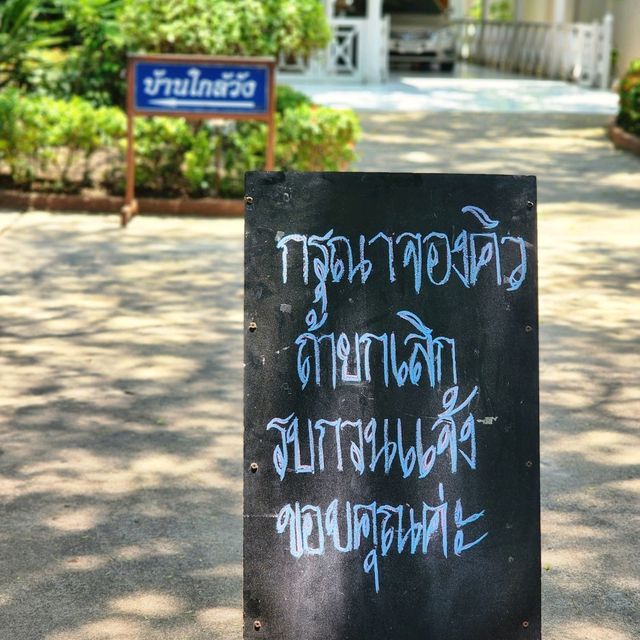 บ้านใกล้วัง
กรุณาจองคิว
ถ้ายกเลิก
รบกวนแจ้ง
ขอบคุณค่ะ